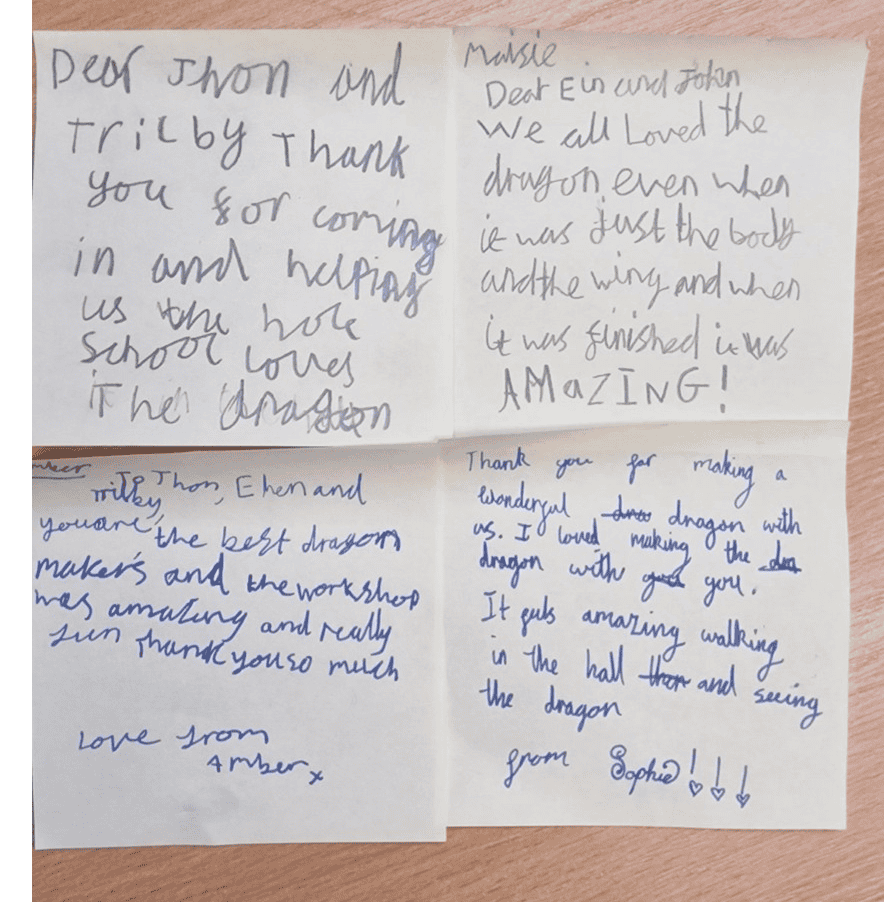 Dear Jhon and
Trilby Thank
you for coming
in and helping
us the hole
School loves
The dragon
Maisie
Dear Ein and John
We all Loved the
dragon even when
it was just the body
and the wing and when
it was finished it was
AMaZING!
To Jhon, Ehen and
Trilby,
you are the best dragon
makers and the workshop
was amazing and really
fun Thank you so much
Love from
Amber x
Thank you for making a
wonderful dragon with
us. I loved making the
dragon with you.
It guls amazing walking
in the hall and seeing
the dragon
from Sophie!!!